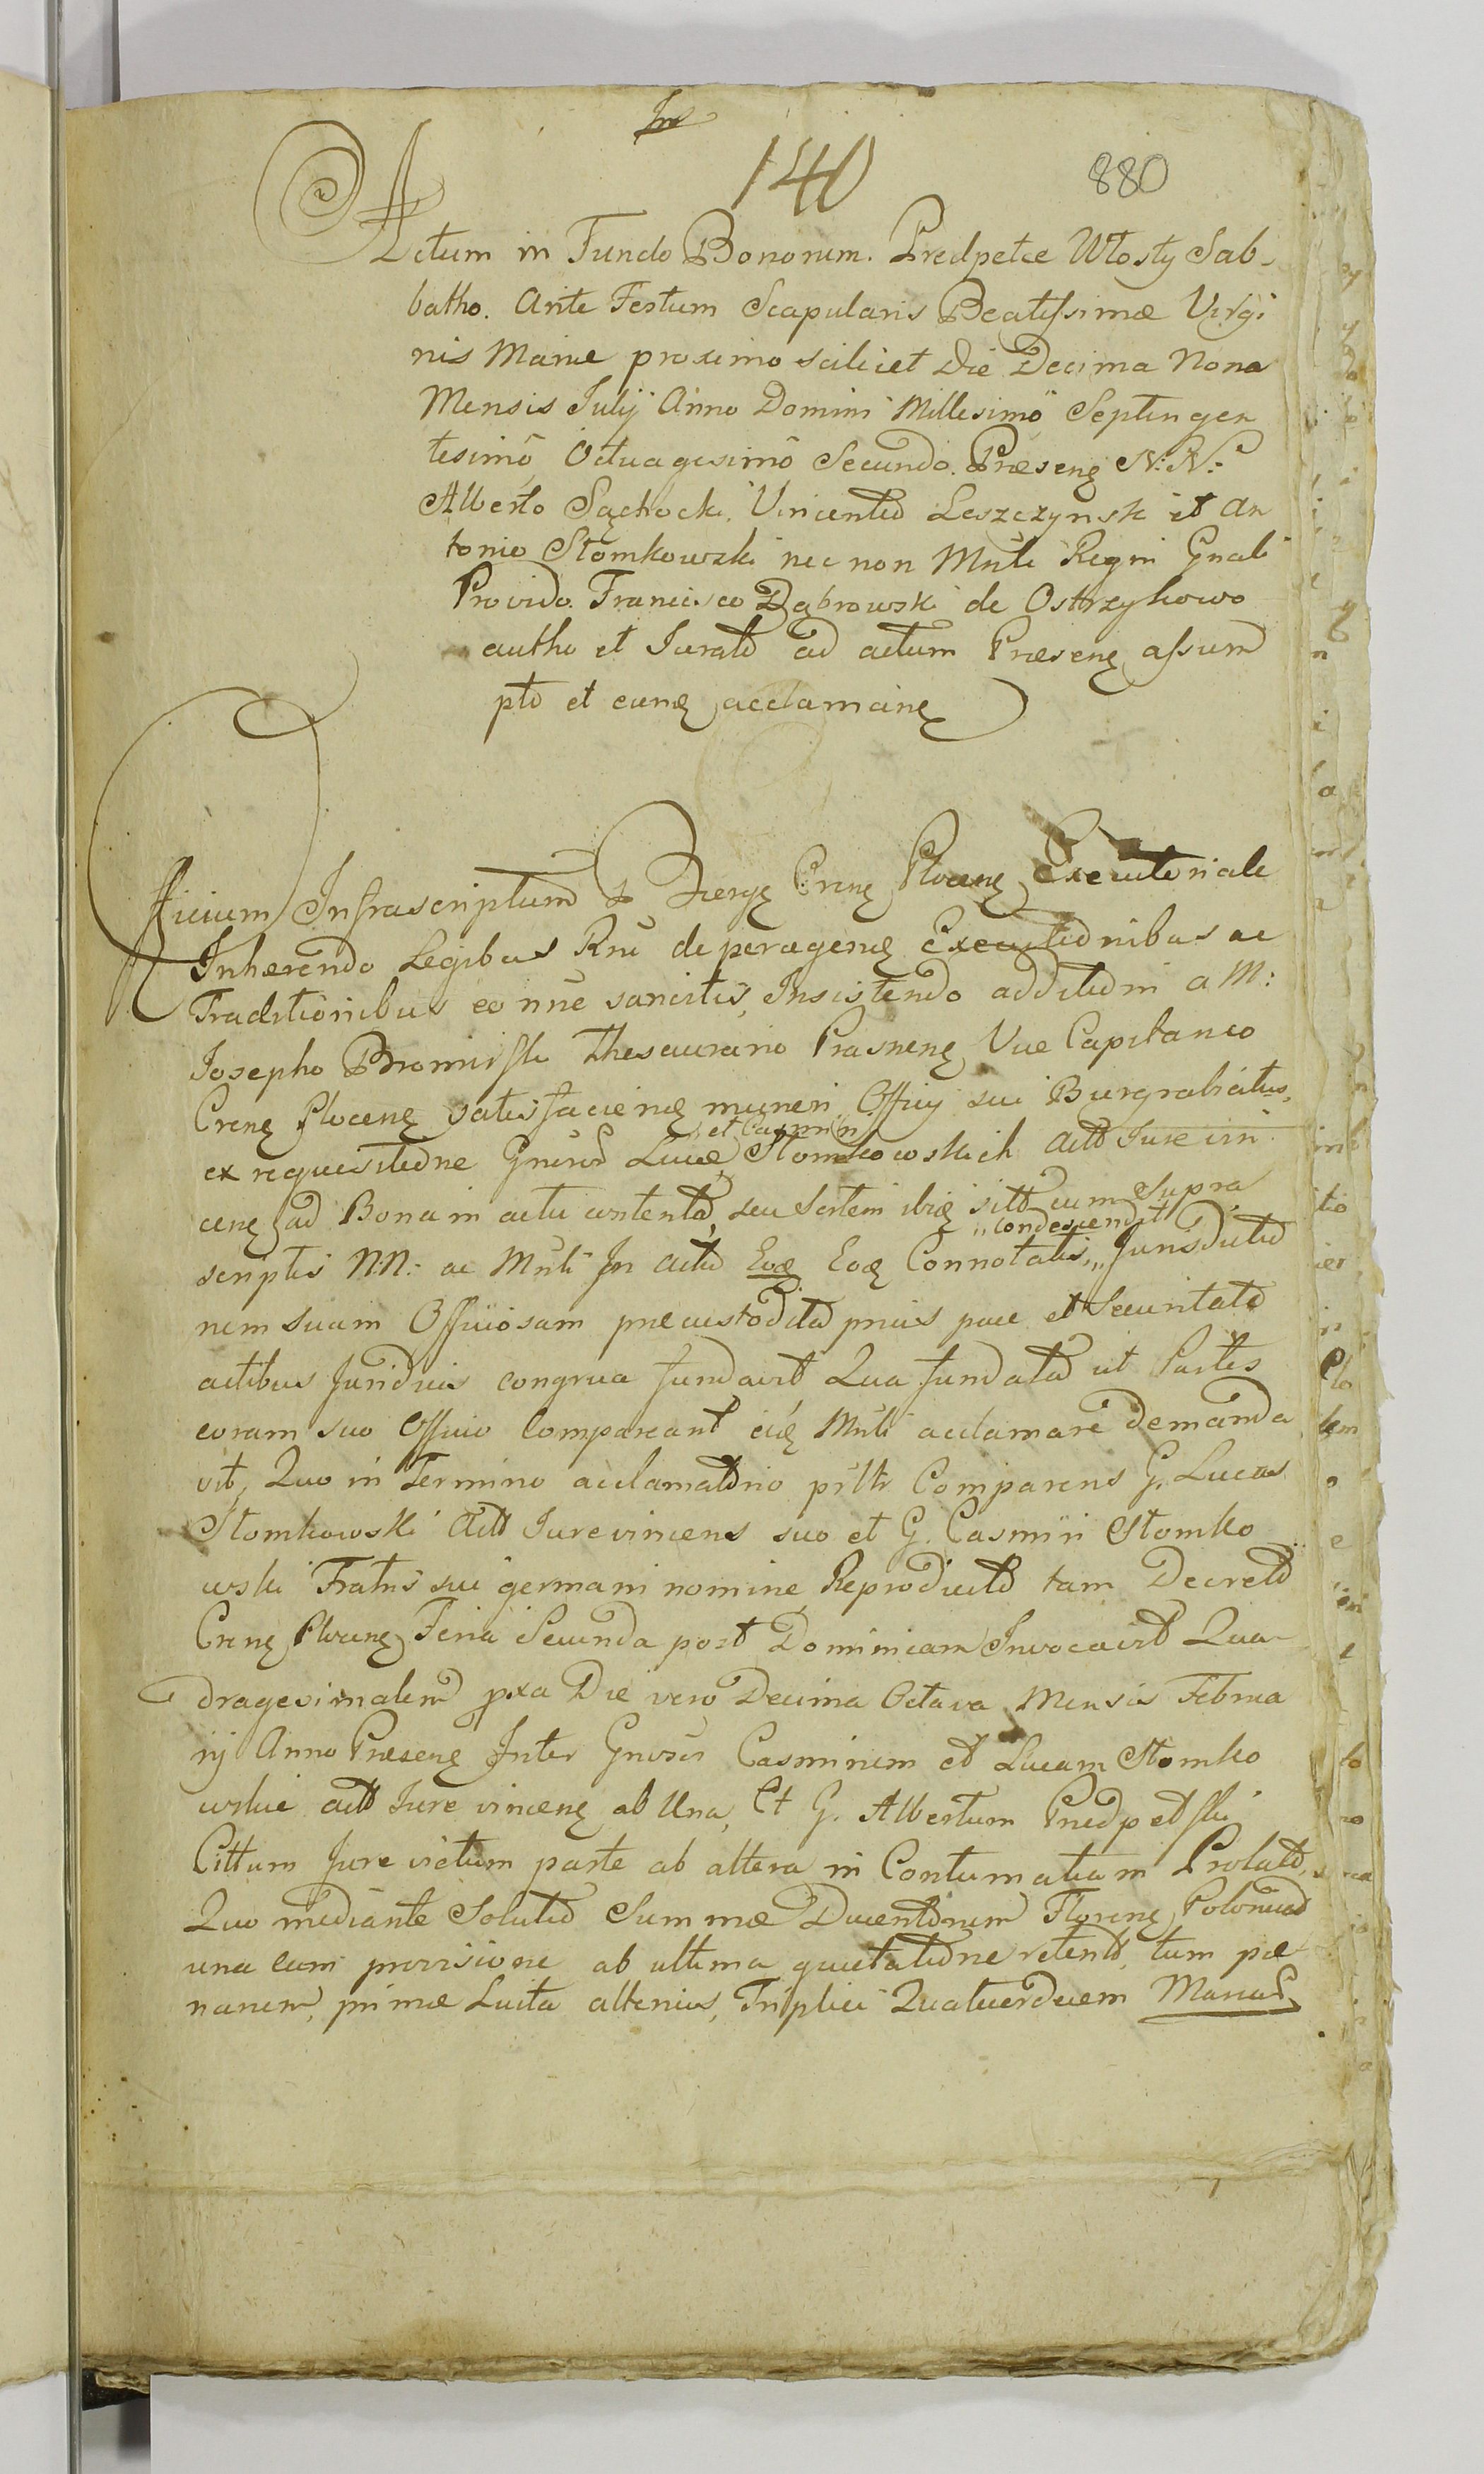 140
880
Actum in Fundo Bonorum. Predpelce Włosty Sab-
batho. Ante Festum Scapularis Beatissimæ Virgi
nis Mariæ proximo scilicet Die Decima Nona
Mensis Julij Anno Domini Millesimo Septingen
tesimo Octuagesimo Secundo. Præsenę N: N:
Alberto Sąchocki. Vincentio Leszczynsk et An
tonio Słomkowski nec non Mnli Regni Gnali
Provido. Francisco Dąbrowski de Ostrzykowo
autho et Jurato ad actum Præsenę assum
pto et eunę acclamainę
Officium Infrascriptum Executoriale
Inhærendo Legibus Rni de peragenę Executionibus ac
Traditionibus eo nne sancitis, Insistendo additioni a M:
Josepho Bromirski Thesaurario Prasnenę Vice Capitaneo
Crenę Plocenę satisfacienę muneri Officij sui Burgrabiatus,
et Casimiri
ex requisitione Gnrorum Lucæ Słomkowskich Actt Jure vin
cenę ad Bona in actu contenta, seu Sortem ibię sitt cum Supra
"condescendit
scriptis N:N: ac Mnli In actu Eoę Eoę Connotatis,,, Jurisdictio
nem suam Officiosam præcustodita prius pace et Securitate
actibus Juridicis congrua fundavit Qua fundata ut Partes
coram suo Officio Compareant eię Mnli acclamare demanda
vit, Quo in Termino acclamationo psltr Comparens G. Lucas
Słomkowski Actt Jurevincens suo et G. Casmiri Słomko
wski Fratris sui germani nomine, Reproducto tam Decreto
Crenę Plocenę Feria Secunda post Dominicam Invocavit Qua-
dragesimalem pxa Die vero Decima Octava Mensis Februa
rij Anno Præsenę Inter Gnrosos Casmirum et Lucam Słomko
wskie actt Jure vincenę ab Una, Et G. Albertum Predpełski
Cittum Jure victum parte ab altera in Contumatiam Prolato,
Quo mediante Solutio Summæ Ducentorum Florenę Polonica
una cum provisione ab ultima quietatione retento, tum pæ
narum, primæ Lucta alterius, Triplici Quatuordecem Marcas